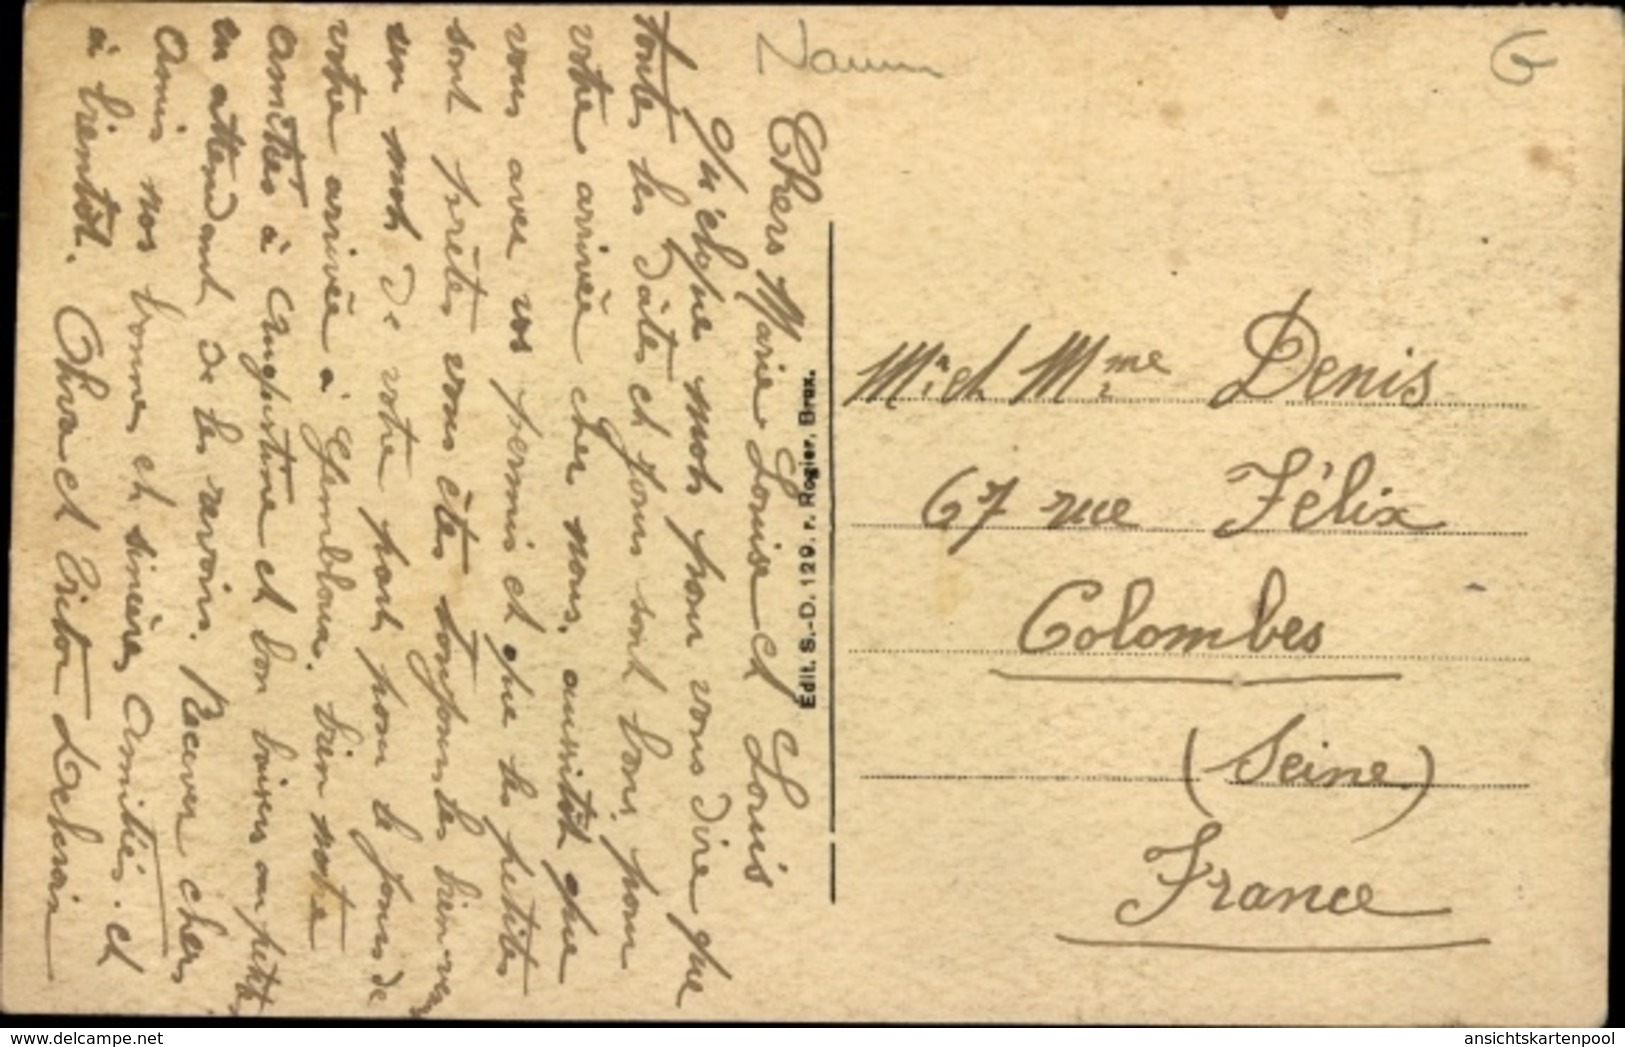 Namur
G
Chers Marie Louise et Louis
quelque mots pour vous dire que
toutes les dâtes et jours sont bons, pour
votre arrivée cher nous, aussitôt que
vous avez vos permis et que les petites
sont prêtes vous êtes toujours les bien venu
un mot de votre part pour le jours de
votre arrivée à Gembloux. bien notre
amitiés à Augustine et bon baisers au petite
en attendant de les revoirs. Recever chers
Amis nos bonnes et sincères Amitiés. et
à bientôt. Oliva et Victor
Edit. S.-D. 129. r. Rogier, Brux.
Mr. et Mme Denis
67 rue Félix
Colombes
(Seine)
France
ansichtskartenpool